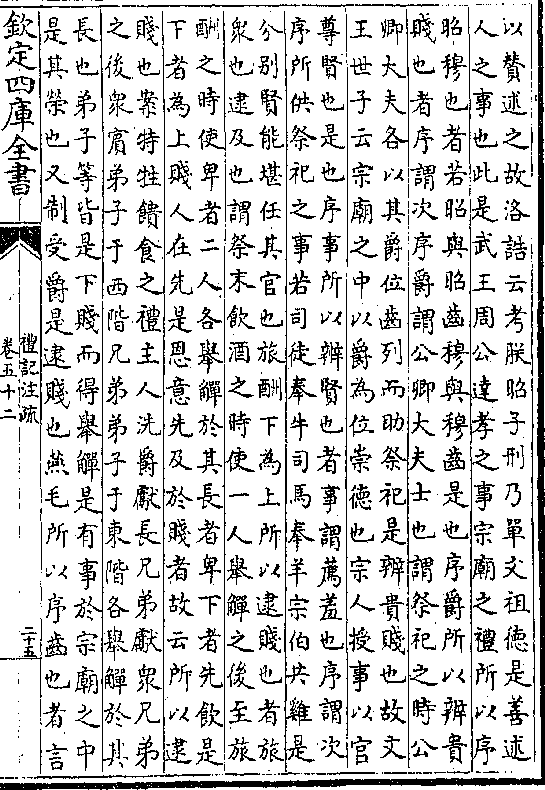 以贊述之故洛誥云考朕昭子刑乃單文祖徳是善述
人之事也此是武王周公達孝之事宗廟之禮所以序
昭穆也者若昭與昭齒穆與穆齒是也序爵所以辨貴
賤也者序謂次序爵謂公卿大夫士也謂祭祀之時公
卿大夫各以其爵位齒列而助祭祀是辨貴賤也故文
王世子云宗廟之中以爵為位崇徳也宗人授事以官
尊賢也是也序事所以辨賢也者事謂薦羞也序謂次
序所供祭祀之事若司徒奉牛司馬奉羊宗伯共雞是
分別賢能堪任其官也旅酬下為上所以逮賤也者旅
衆也逮及也謂祭末飲酒之時使一人舉觶之後至旅
酬之時使卑者二人各舉觶於其長者卑下者先飲是
下者為上賤人在先是恩意先及於賤者故云所以逮
賤也案特牲饋食之禮主人洗爵獻長兄弟獻衆兄弟
之後衆賓弟子于西階兄弟弟子于東階各舉觶於其
長也弟子等皆是下賤而得舉觶是有事於宗廟之中
是其榮也又制受爵是逮賤也燕毛所以序齒也者言
欽定四庫全書
禮記注疏
卷五十二
二十五